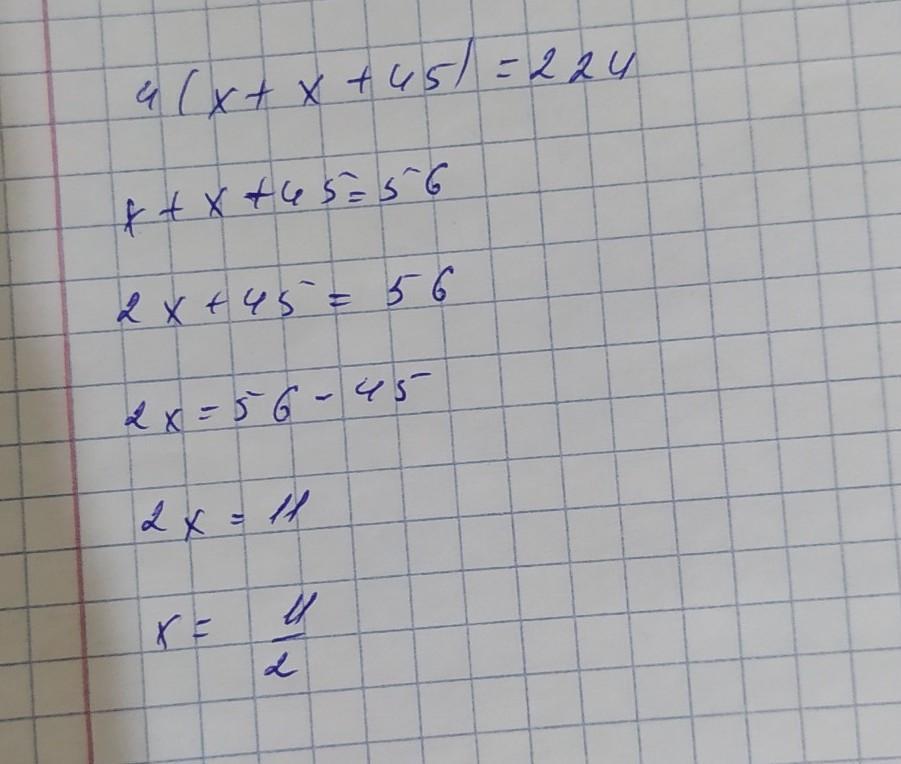 4(x + x + 45) = 224
x + x + 45 = 56
2x + 45 = 56
2x = 56 - 45
2x = 11
x = 11/2